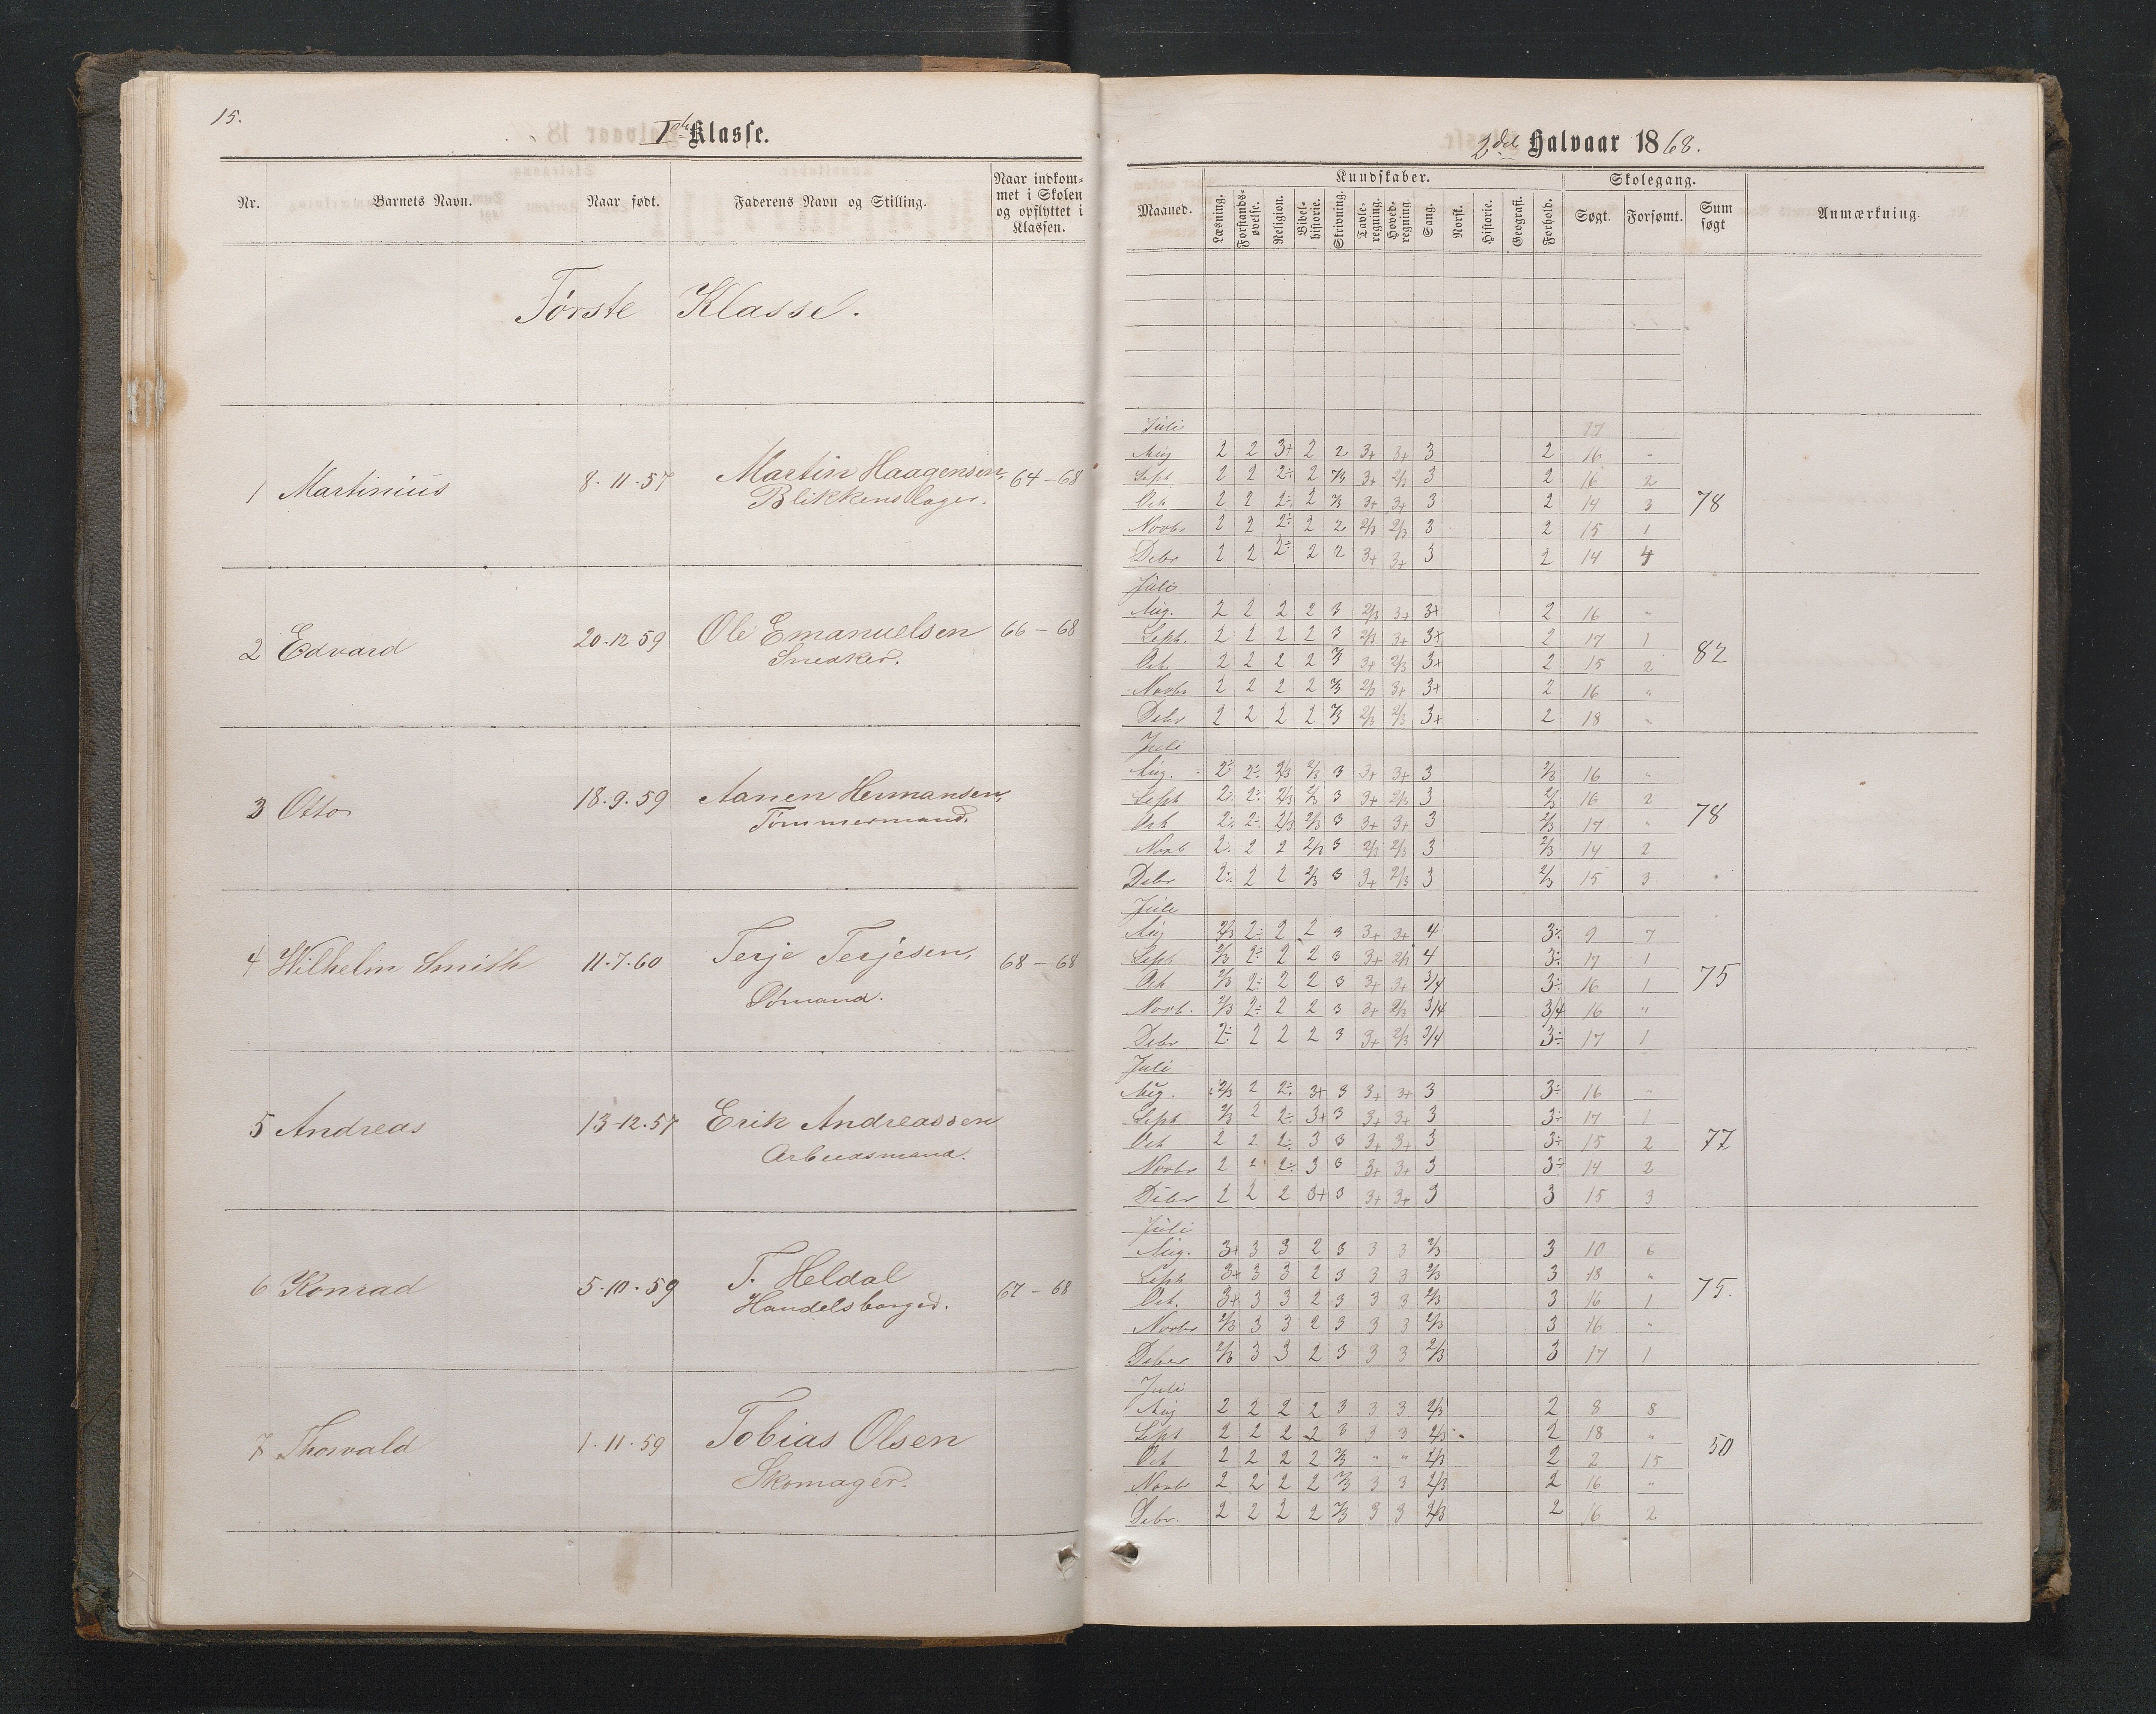 15.
1ste Klasse.
2det Halvaar 1868.
Nr. Barnets Navn. Naar født. Faderens Navn og Stilling. Naar indkommet i Skolen og opflyttet i Klassen.
Maaned. Kundskaber. Skolegang. Sum søgt Anmærkning.
Læsning. Forstandsøvelse. Religion. Bibelhistorie. Skrivning. Tavleregning. Hovedregning. Sang. Norsk. Historie. Geografi. Forhold. Søgt. Forsømt.
Første Klasse.
1 Martinius 8.11.57 Martin Haagensen, 64-68
Blikkenslager.
Juli 17
Aug 2 2 3+ 2 2 3+ 3+ 3 2 16 "
Sept 2 2 2÷ 2 2/3 3+ 2/3 3 2 16 2
Oct. 2 2 2÷ 2 2/3 3+ 3+ 3 2 14 3 78
Novbr 2 2 2÷ 2 2 2/3 2/3 3 2 15 1
Debr 2 2 2÷ 2 2 3+ 3+ 3 2 14 4
2 Edvard 20-12 59 Ole Emanuelsen 66-68
Snedker.
Juli
Aug. 2 2 2 2 3 2/3 3+ 3+ 2 16 "
Sept. 2 2 2 2 3 2/3 3+ 3+ 2 17 1
Oct. 2 2 2 2 2/3 3+ 2/3 3+ 2 15 2 82
Novbr 2 2 2 2 2/3 2/3 3+ 3+ 2 16 "
Debr 2 2 2 2 2/3 2/3 2/3 3+ 2 18 "
3 Otto 18.9.59 Aanen Hermansen,
Tømmermand.
Juli
Aug. 2÷ 2÷ 2/3 2/3 3 3+ 3+ 3 2/3 16 "
Sept 2÷ 2÷ 2/3 2/3 3 3+ 2/3 3 2/3 16 2
Oct 2÷ 2÷ 2/3 2/3 3 3+ 3+ 3 2/3 17 " 78
Novb 2÷ 2 2 2/3 3 2/3 2/3 3 2/3 14 2
Debr 2÷ 2 2 2/3 3 3+ 2/3 3 2/3 15 3
4 Wilhelm Smith 11.7.60 Terje Terjesen, 68-68
Sømand.
Juli
Aug 2/3 2÷ 2 2 3 3+ 3+ 4 3÷ 9 7
Sept 2/3 2÷ 2 2 3 3+ 2/3 4 3÷ 17 1
Oct 2/3 2÷ 2 2 3 3+ 3+ 3/4 3÷ 16 1 75
Novb. 2/3 2÷ 2 2 3 3+ 2/3 3/4 3/4 16 "
Debr 2÷ 2 2 2 3 3+ 2/3 3/4 3÷ 17 1
5 Andreas 13-12.57 Erik Andreassen
Arbeidsmand.
Juli
Aug. 2/3 2 2÷ 3+ 3 3+ 3+ 3 3÷ 16 "
Sept 2/3 2 2÷ 3+ 3 3+ 3+ 3 3÷ 17 1
Oct 2 2 2÷ 3 3 3+ 3+ 3 3÷ 15 2 77
Novbr 2 2 2÷ 3 3 3+ 3+ 3 3÷ 14 2
Debr 2 2 2 3+ 3 3+ 3+ 3 3 15 3
6 Konrad 5-10.59 T. Heldal 67-68
Handelsborger.
Juli
Aug. 3+ 3 3 2 3 3 3 2/3 3 10 6
Sept 3+ 3 3 2 3 3 3 2/3 3 18 "
Oct. 3+ 3 3 2 3 3 3 2/3 3 16 1 75.
Novbr 2/3 3 3 2 3 3 3 2/3 3 16 "
Deber 2/3 3 3 2 3 3 3 2/3 3 17 1
7 Thorvald 1.11.59 Tobias Olsen
Skomager.
Juli
Aug 2 2 2 2 3 3 3 2/3 2 8 8
Sept 2 2 2 2 3 3 3 2/3 2 18 "
Oct 2 2 2 2 2/3 " " 2/3 2 2 15 50
Novb 2 2 2 2 2/3 3 3 2/3 2 16 "
Debr. 2 2 2 2 2/3 3 3 2/3 2 16 2